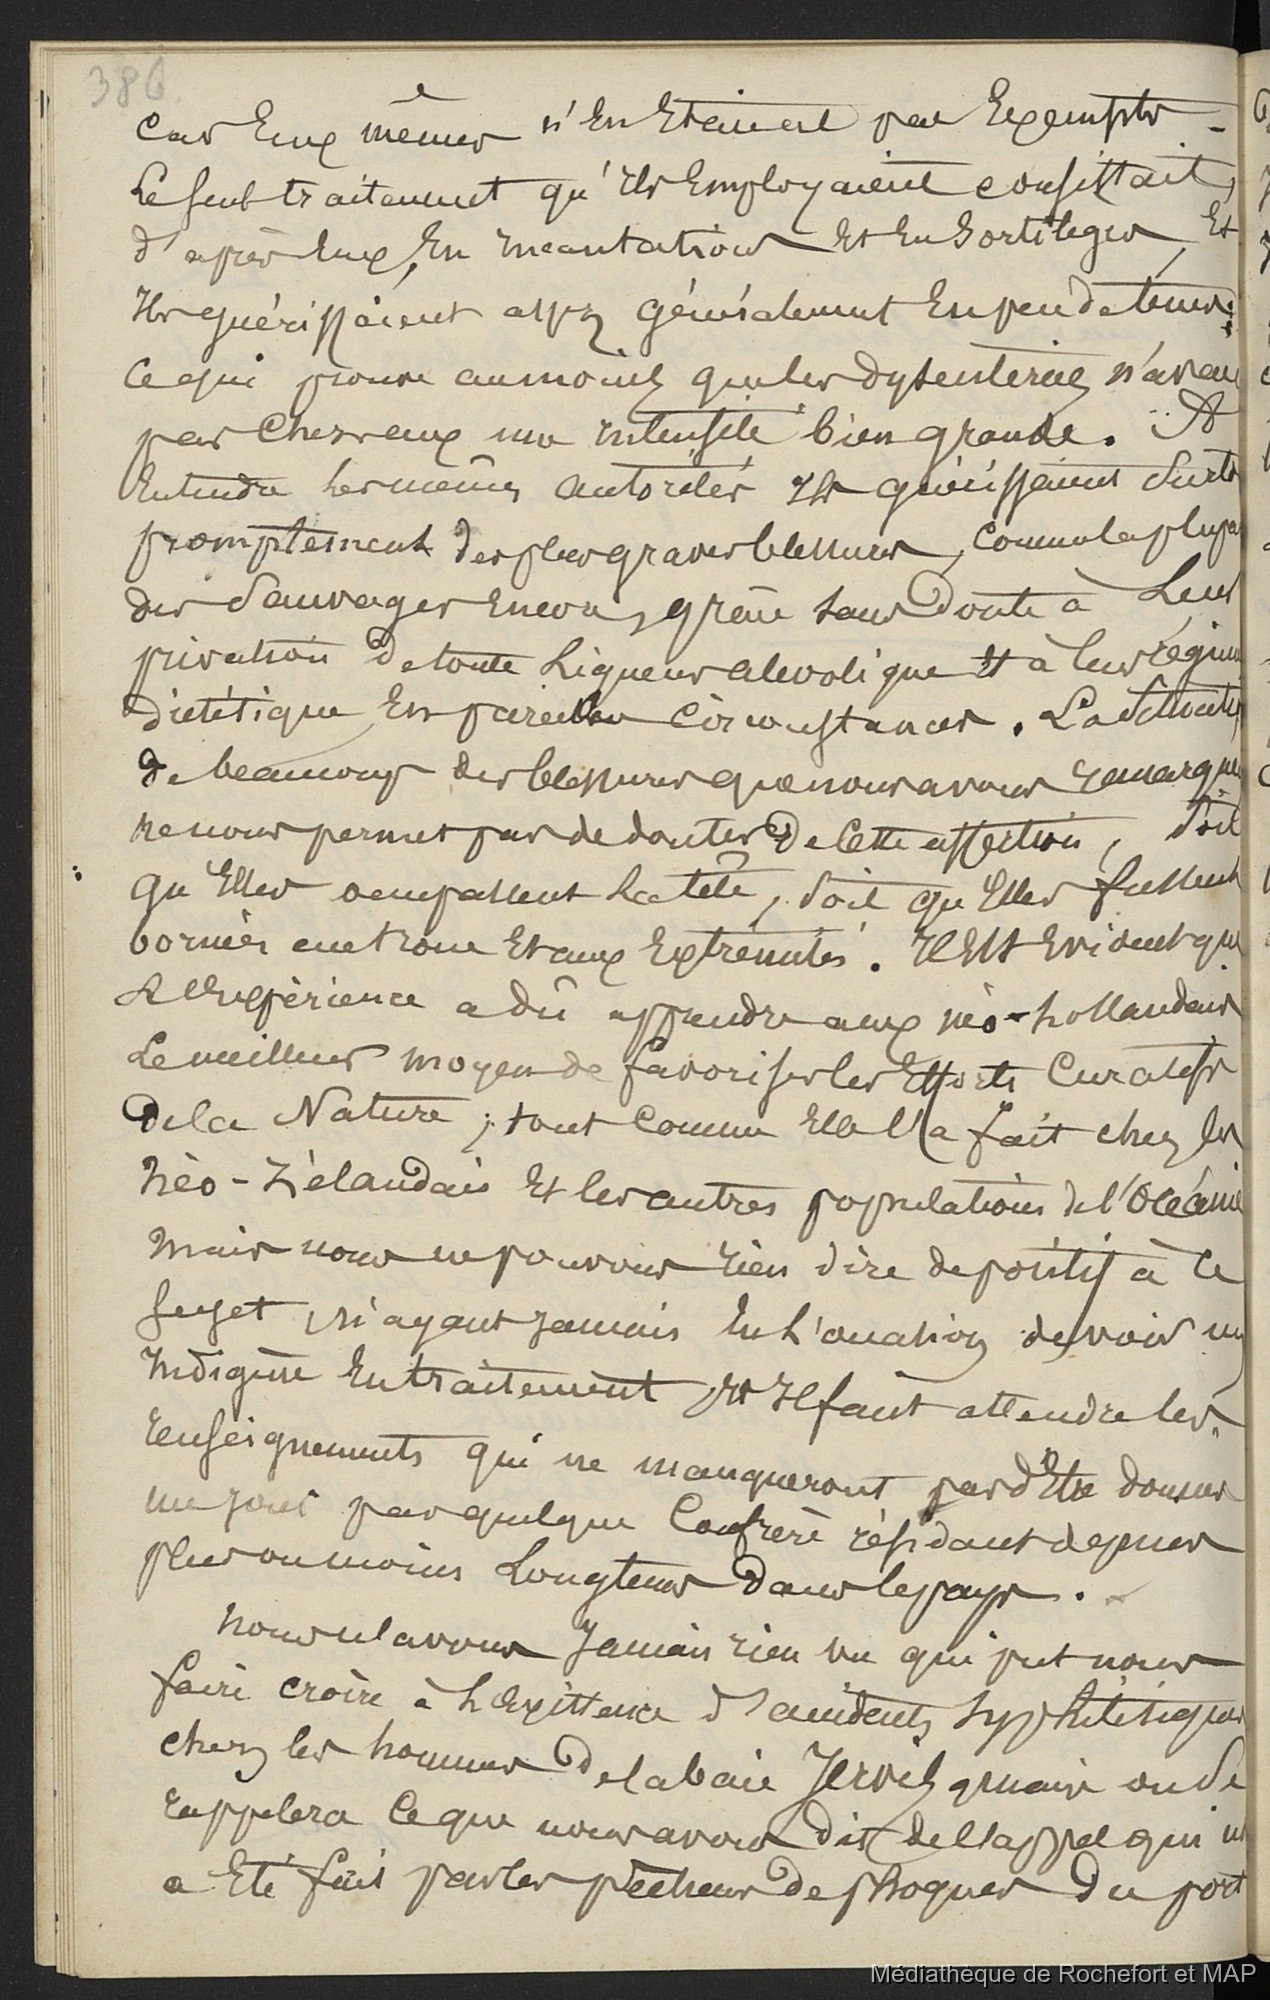 386
car Eux mêmes n'En Etaient pas Exempts -
Le seul traitement qu'Ils Employaient consistait,
d'après Eux, En Incantations Et En Sortilèges, Et
Ils guérissaient assez généralement En peu de tems;
Ce qui prouve aumoins que les dysenteries n'avai
pas Chez eux une intensité bien grande. A
Entendre les mêmes autorités Ils guérissaient
promptement des plus graves blessures, comme la plupa
des Sauvages Encore, grâce sans Doute à Leur
privation de toute Liqueur alcoolique Et à leur régime
diététique En pareilles Circonstances. La
de beaucoup des blessures que nous avons remarqué
ne nous permet pas de douter de Cette assertion, Soit
qu'Elles occupassent La tête, Soit qu'Elles fussent
bornées au tronc Et aux Extrémités. Il Est Evident que
L'Expérience a dû apprendre aux néo-hollandais
Le meilleur moyen de favoriser les Efforts Curatifs
de la Nature; tout Comme Elle l'a fait chez les
Néo-Zélandais Et les autres populations de l'Océanie
Mais nous ne pouvons rien dire de positif à Ce
Sujet, n'ayant Jamais Eu L'occasion de voir un
Indigène En traitement, Et Il faut attendre les
renseignements qui ne manqueront pas d'Etre donnés
un jour par quelque Confrère résidant depuis
plus ou moins Longtems Dans le pays.
Nous n'avons Jamais rien vu qui put nous
faire croire à L'Existence d'accidents Syphilitiques
chez les hommes De la baie Jervis, mais on Se
rappelera Ce que nous avons dit de l'appel qui n
a Eté fait par les pêcheurs De phoques Du port
Médiathèque de Rochefort et MAP